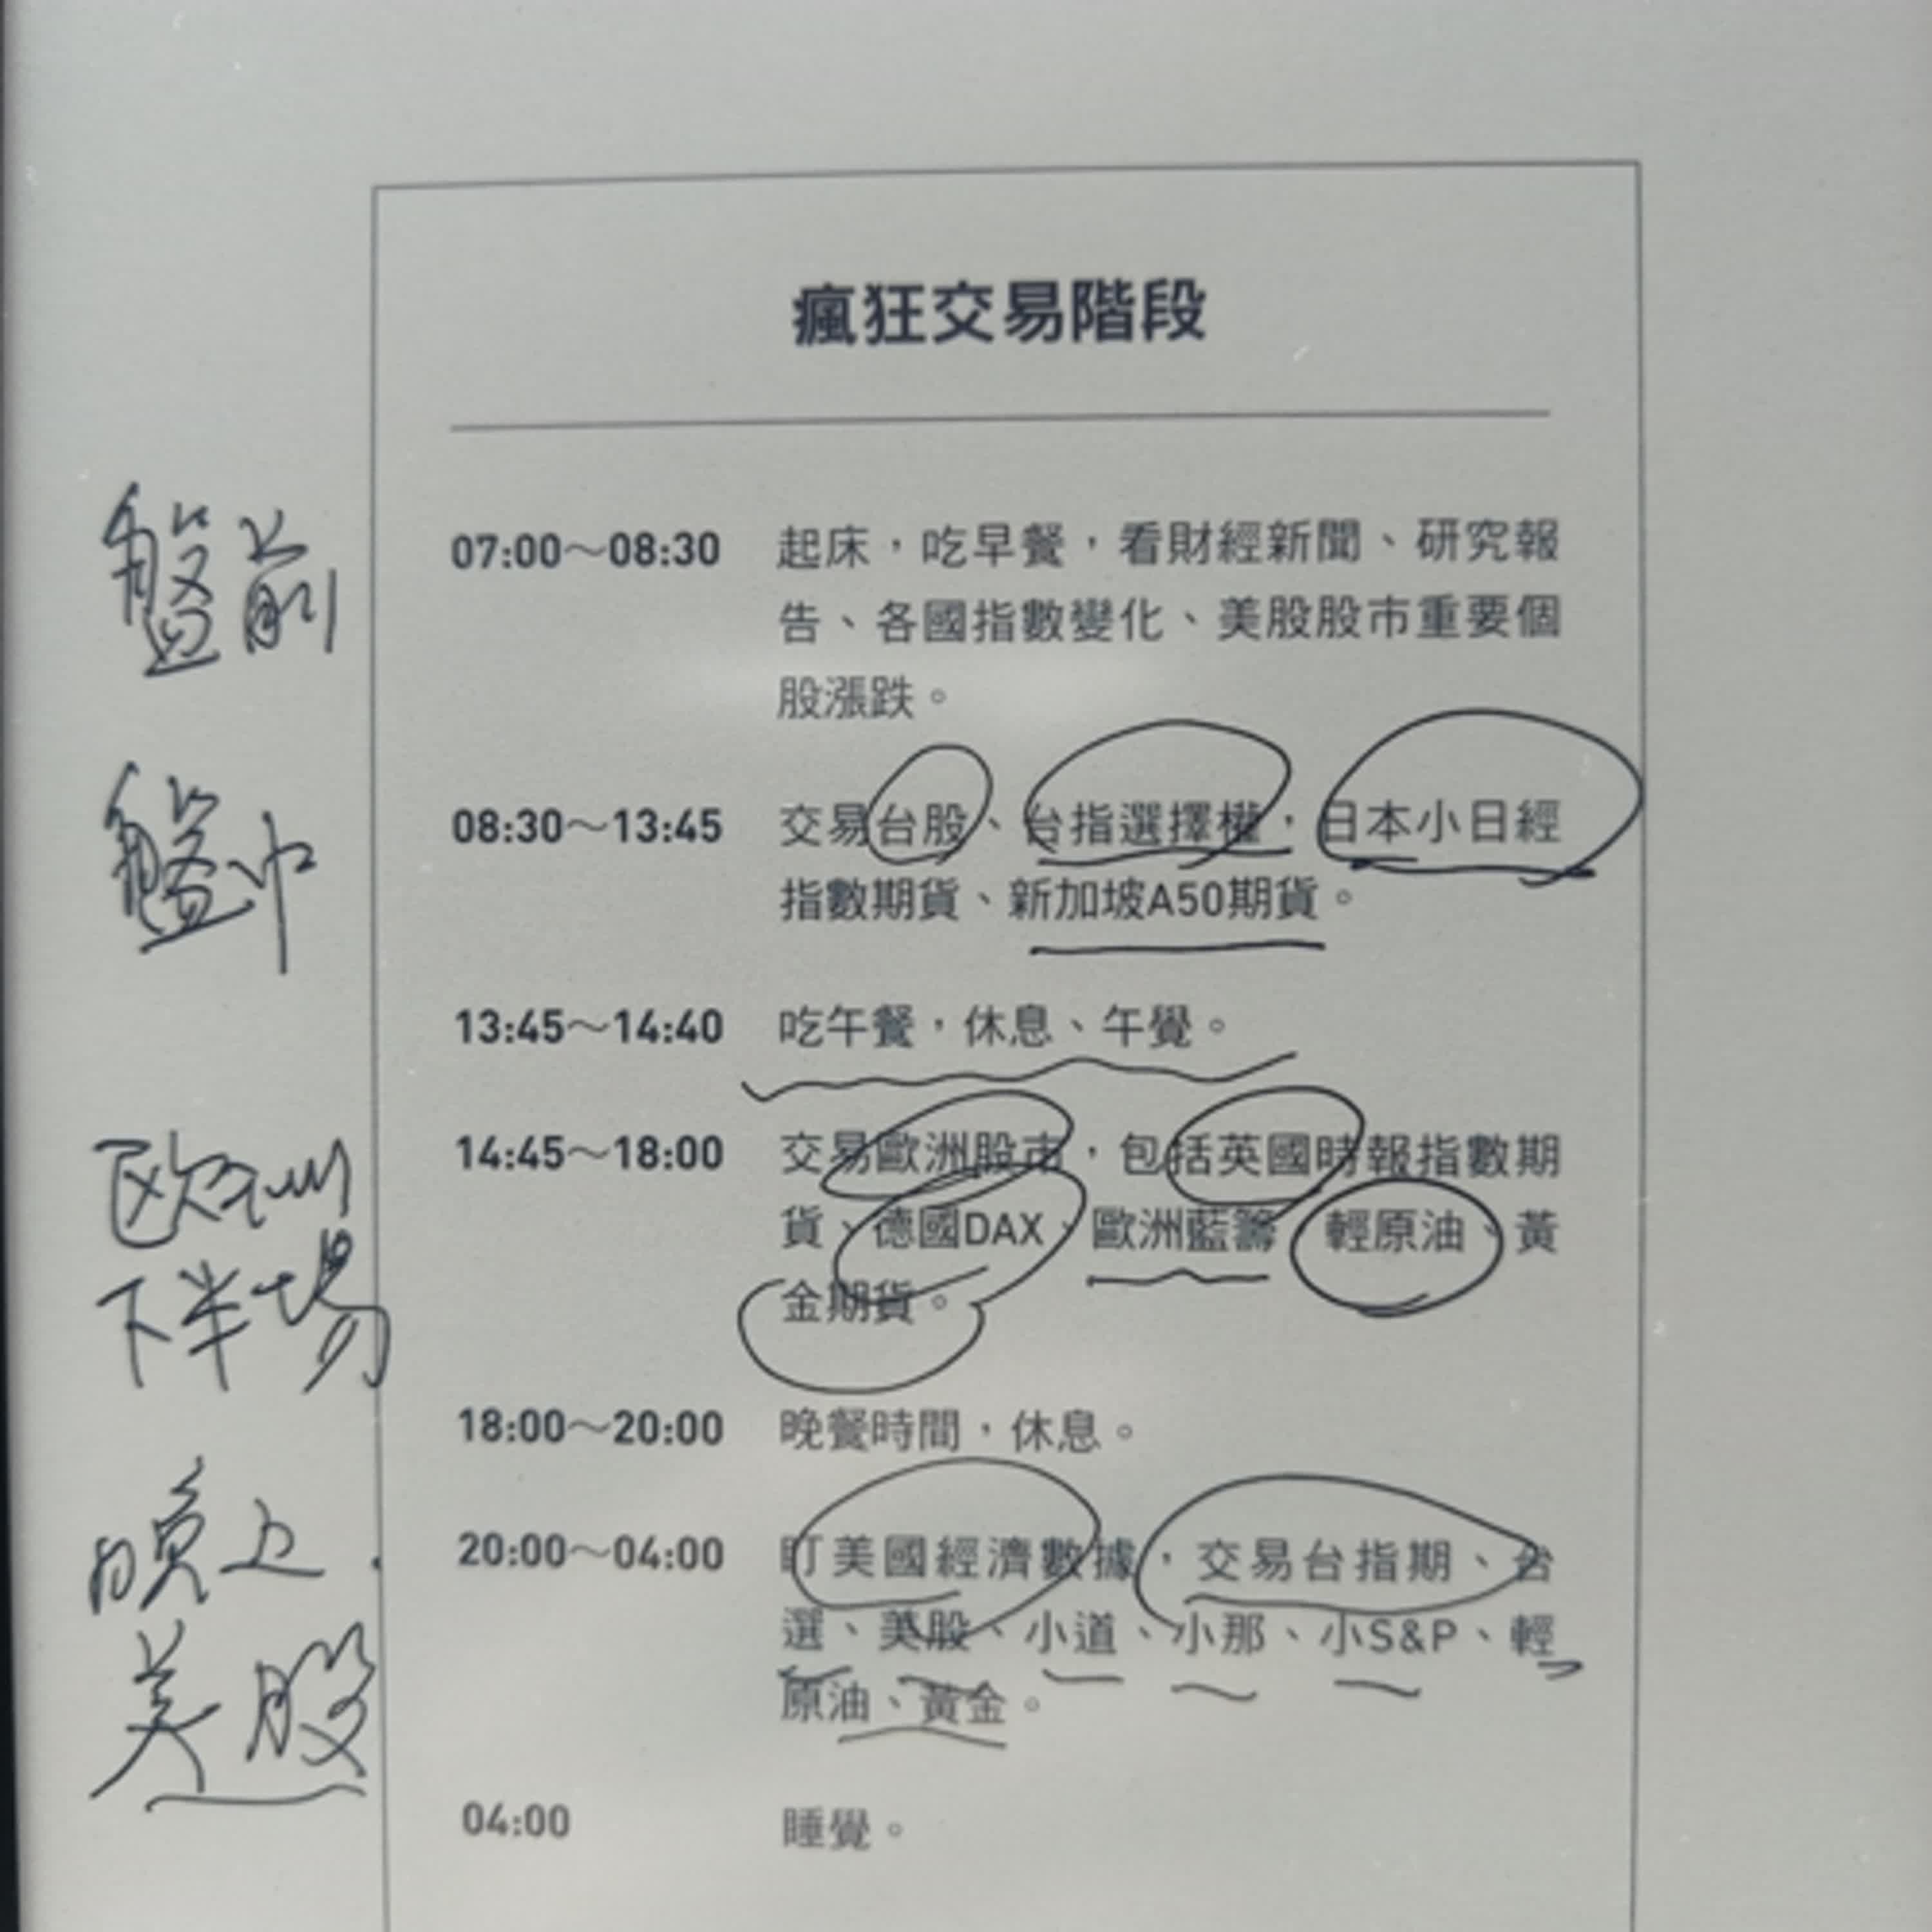 瘋狂交易階段
盤前
07:00～08:30 起床，吃早餐，看財經新聞、研究報
告、各國指數變化、美股股市重要個
股漲跌。
盤中
08:30～13:45 交易台股、台指選擇權，日本小日經
指數期貨、新加坡A50期貨。
13:45～14:40 吃午餐，休息、午覺。
欧洲
14:45～18:00 交易歐洲股市，包括英國時報指數期
貨、德國DAX、歐洲藍籌、輕原油、黃
下半場
金期貨。
18:00～20:00 晚餐時間，休息。
晚上.
20:00～04:00 盯美國經濟數據，交易台指期、台
選、美股、小道、小那、小S&P、輕
美股
原油、黃金。
04:00 睡覺。